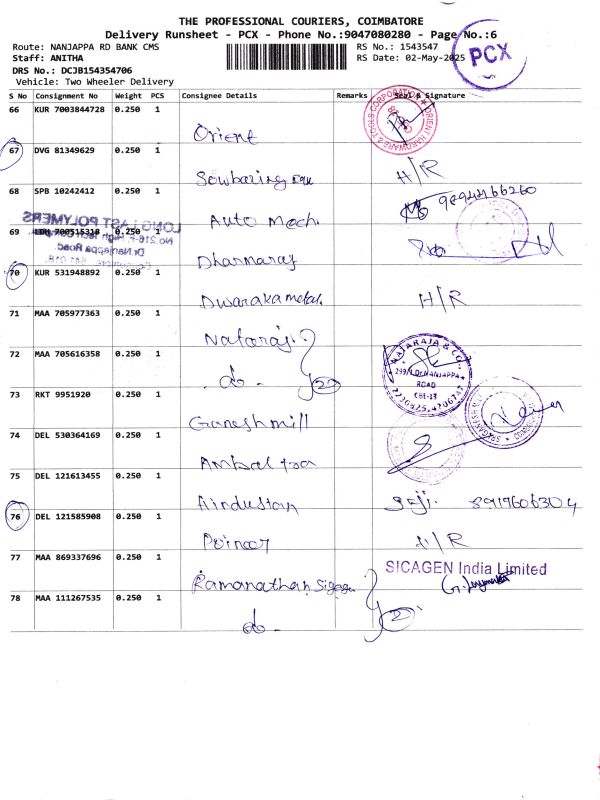 THE PROFESSIONAL COURIERS, COIMBATORE
Delivery Runsheet - PCX - Phone No.:9047080280 - Page No.:6
Route: NANJAPPA RD BANK CMS
RS No.: 1543547
Staff: ANITHA
RS Date: 02-May-2025
PCX
DRS No.: DCJB154354706
Vehicle: Two Wheeler Delivery
S No Consignment No Weight PCS Consignee Details Remarks Seal & Signature
66 KUR 7003844728 0.250 1
Orient
ORIENT HARDWARE & TOOLS CORPORATION
67 DVG 81349629 0.250 1
H/R
68 SPB 10242412 0.250 1
Auto Mech.
9894466260
LONG LAST POLYMERS
69 0.250 1
Dr.Nanjappa Road
Dharmaraj
70 KUR 531948892 0.250 1
Dwaraka metal.
H/R
71 MAA 705977363 0.250 1
Nataraj
72 MAA 705616358 0.250 1
do - 2
NATARAJA & CO.
299/1 Dr.NANJAPPA
ROAD
CBE-18
73 RKT 9951920 0.250 1
Ganesh mill
74 DEL 530364169 0.250 1
Ambal
75 DEL 121613455 0.250 1
Hindustan
8919606304
76 DEL 121585908 0.250 1
H/R
77 MAA 869337696 0.250 1
SICAGEN India Limited
Ramanathan
78 MAA 111267535 0.250 1
do - 2